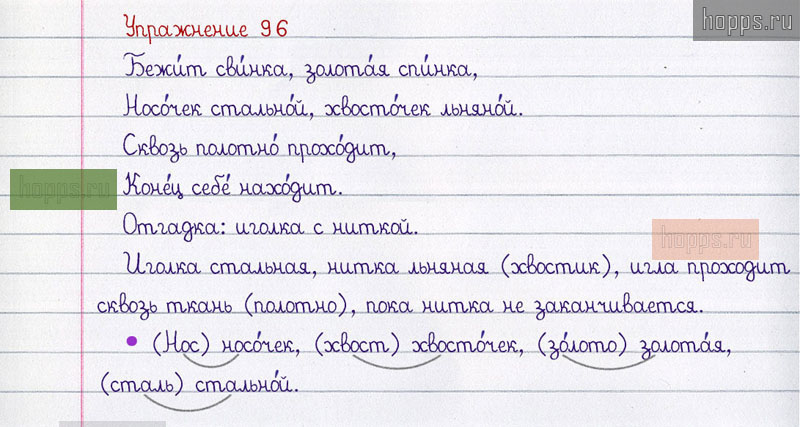 hopps.ru
Упражнение 96
Бежи́т сви́нка, золота́я спи́нка,
Носо́чек стально́й, хвосто́чек льняно́й.
Сквозь полотно́ прохо́дит,
hopps.ru
Коне́ц себе́ нахо́дит.
Отгадка: иголка с ниткой.
hopps.ru
Иголка стальная, нитка льняная (хвостик), игла проходит
сквозь ткань (полотно), пока нитка не заканчивается.
• (Нос) носо́чек, (хвост) хвосто́чек, (зо́лото) золота́я,
(сталь) стально́й.